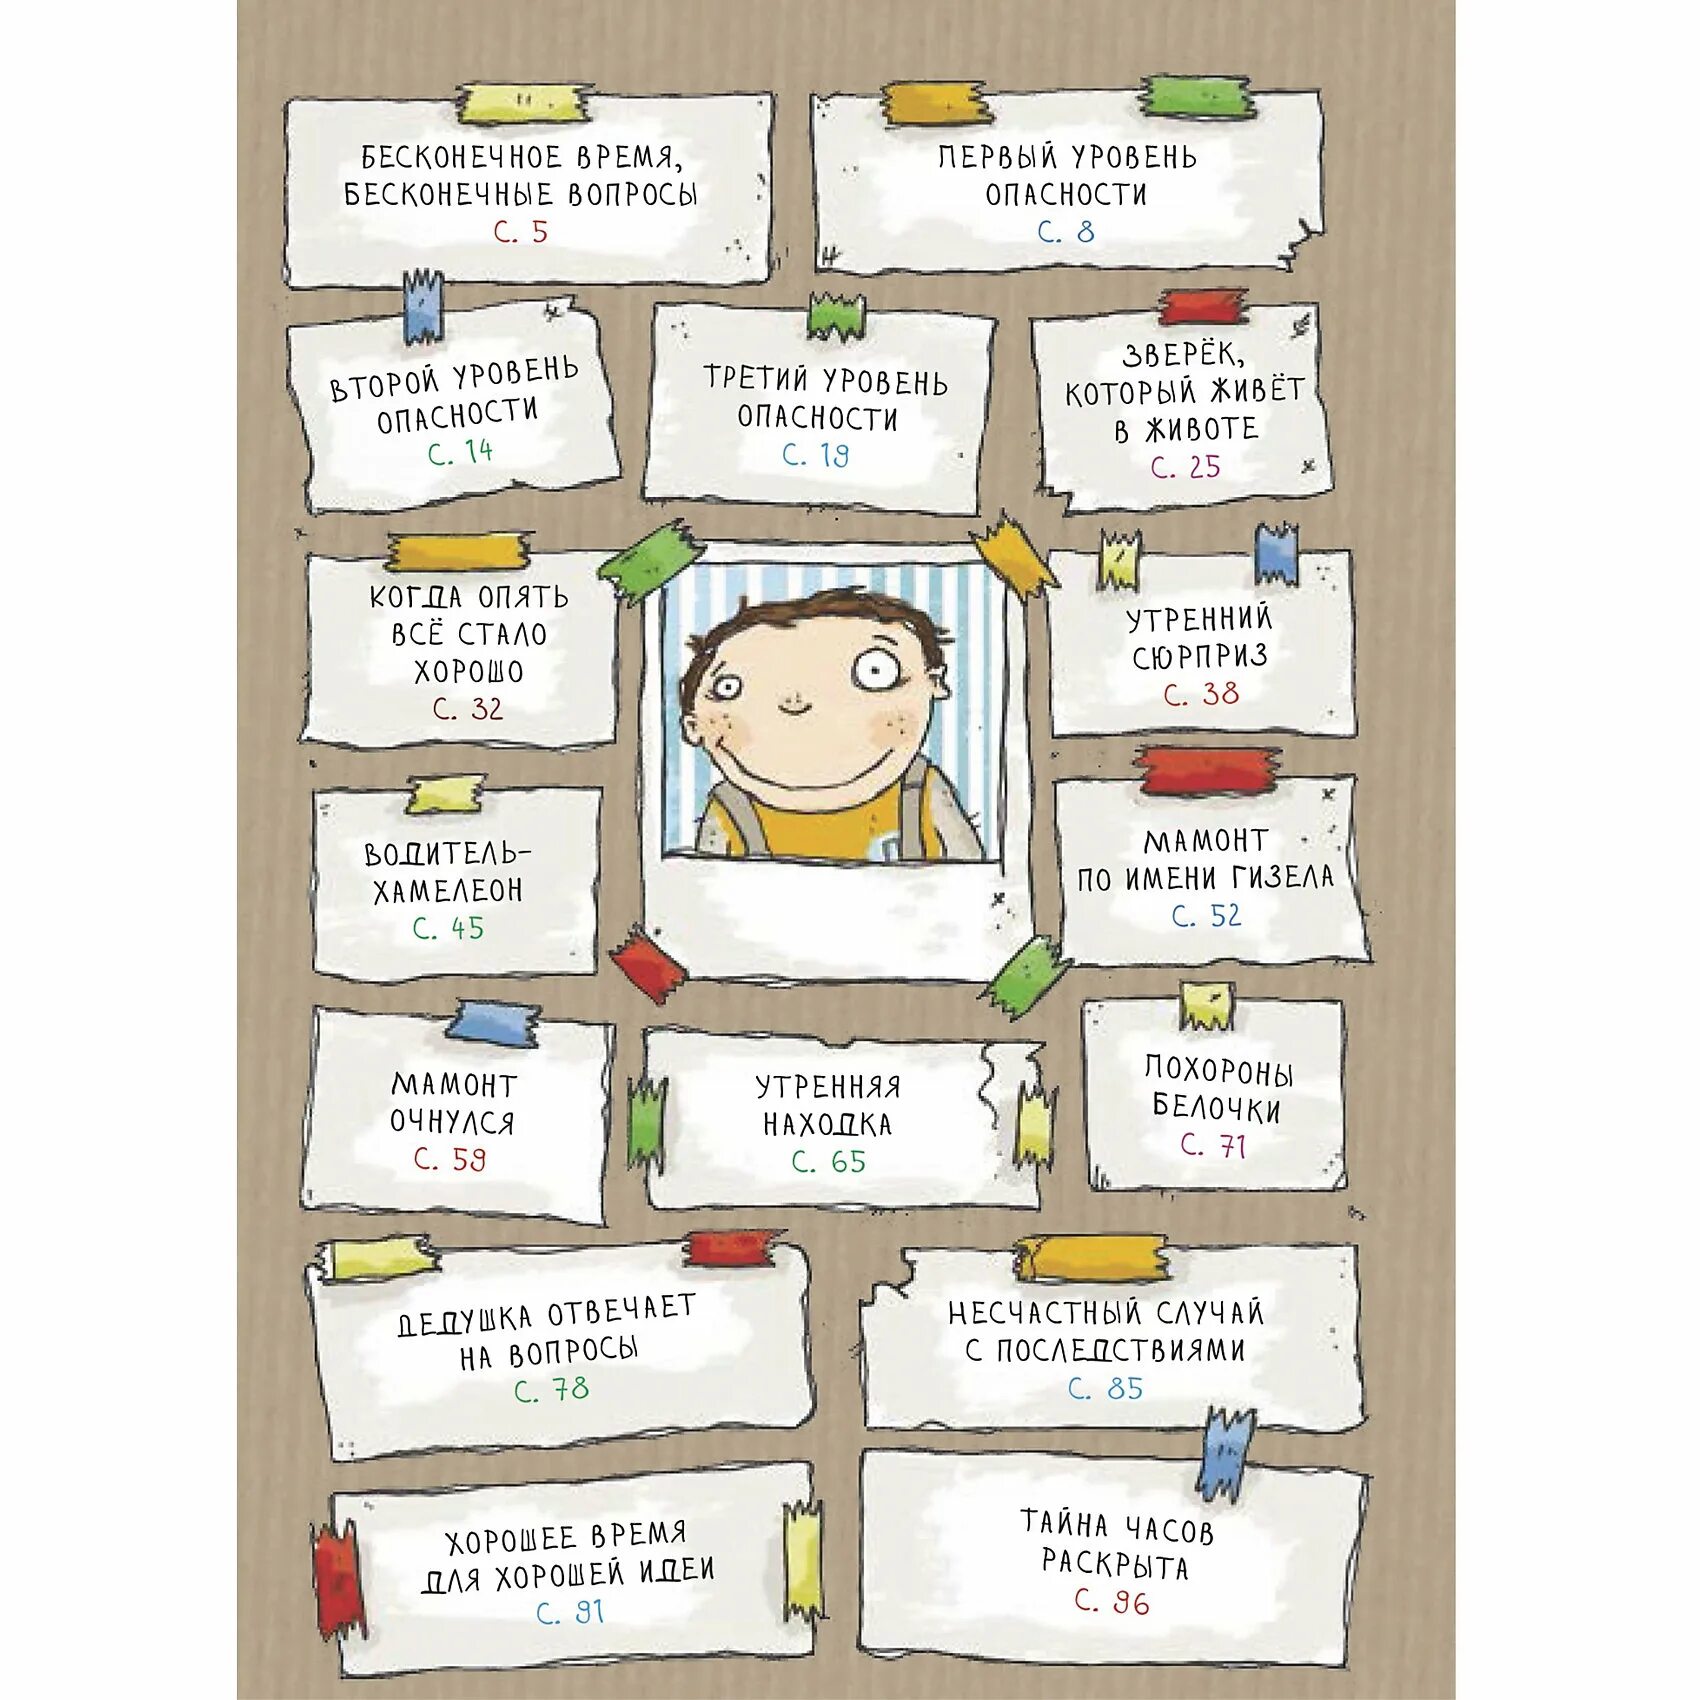 БЕСКОНЕЧНОЕ ВРЕМЯ,
БЕСКОНЕЧНЫЕ ВОПРОСЫ
С. 5
ПЕРВЫЙ УРОВЕНЬ
ОПАСНОСТИ
С. 8
ВТОРОЙ УРОВЕНЬ
ОПАСНОСТИ
С. 14
ТРЕТИЙ УРОВЕНЬ
ОПАСНОСТИ
С. 19
ЗВЕРЁК,
КОТОРЫЙ ЖИВЁТ
В ЖИВОТЕ
С. 25
КОГДА ОПЯТЬ
ВСЁ СТАЛО
ХОРОШО
С. 32
УТРЕННИЙ
СЮРПРИЗ
С. 38
ВОДИТЕЛЬ-
ХАМЕЛЕОН
С. 45
МАМОНТ
ПО ИМЕНИ ГИЗЕЛА
С. 52
МАМОНТ
ОЧНУЛСЯ
С. 59
УТРЕННЯЯ
НАХОДКА
С. 65
ПОХОРОНЫ
БЕЛОЧКИ
С. 71
ДЕДУШКА ОТВЕЧАЕТ
НА ВОПРОСЫ
С. 78
НЕСЧАСТНЫЙ СЛУЧАЙ
С ПОСЛЕДСТВИЯМИ
С. 85
ХОРОШЕЕ ВРЕМЯ
ДЛЯ ХОРОШЕЙ ИДЕИ
С. 91
ТАЙНА ЧАСОВ
РАСКРЫТА
С. 96